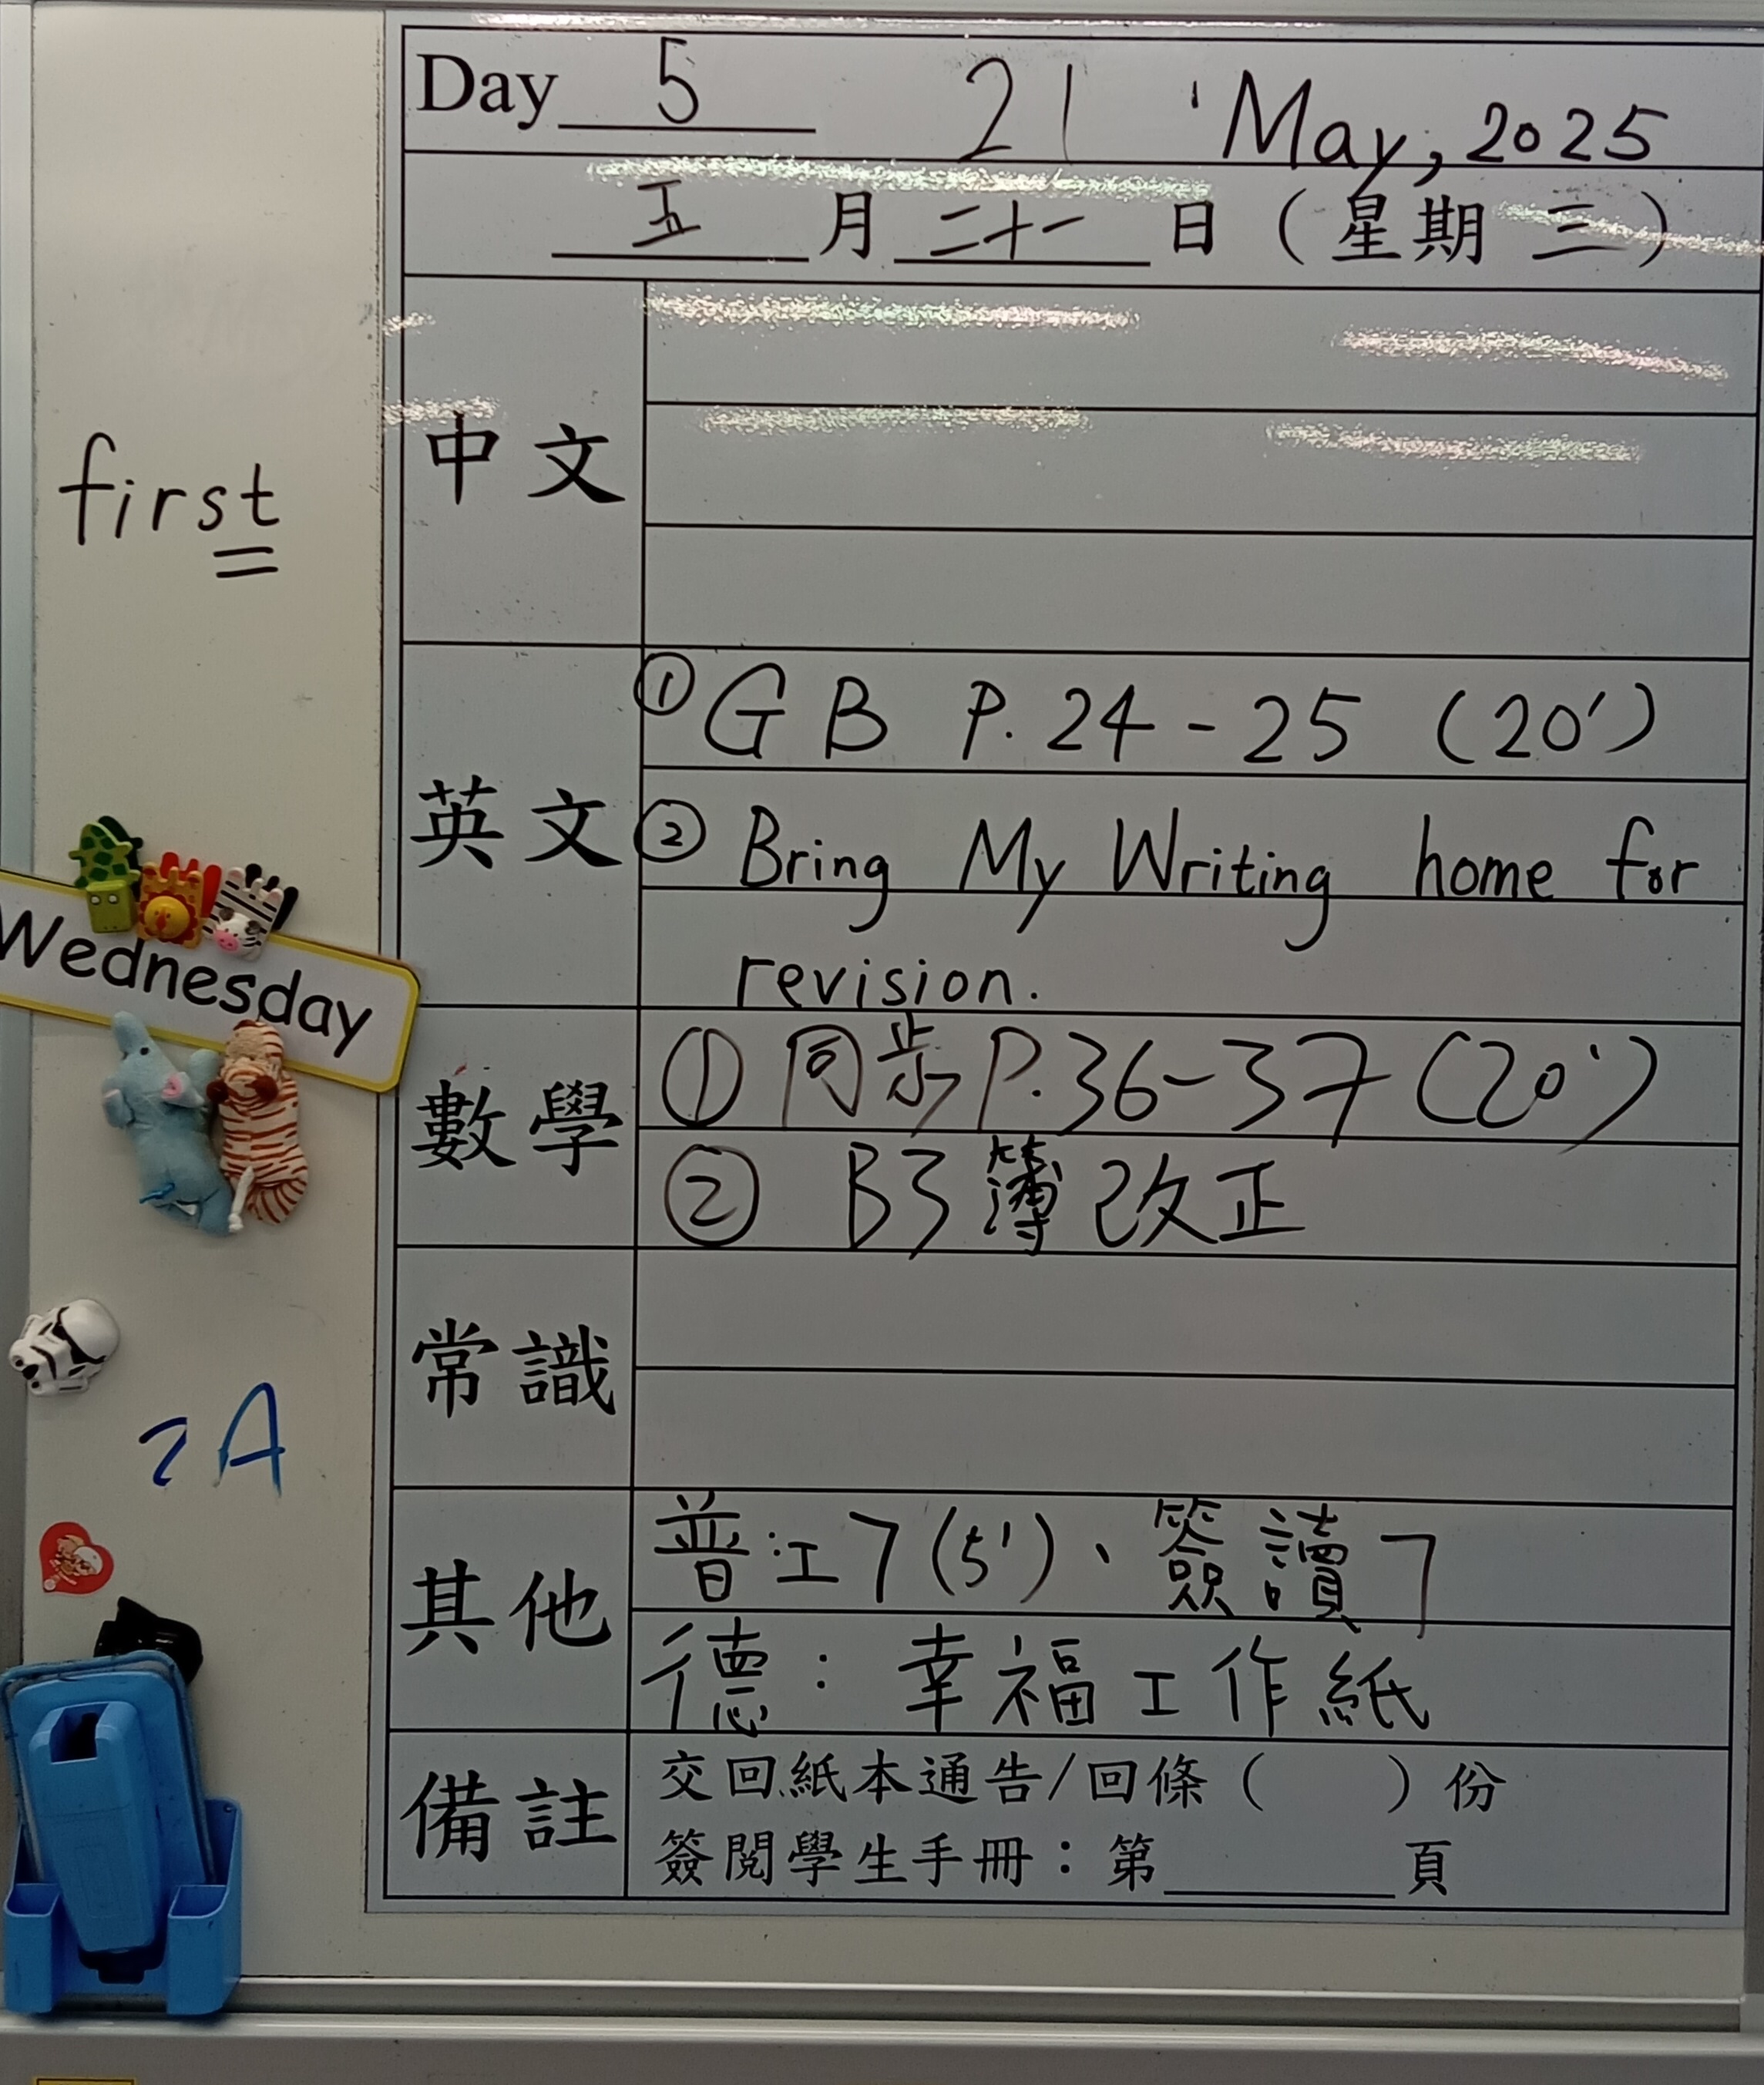 Day 5 21 May, 2025
五 月 二十一 日 ( 星期 三 )
first
中文
英文
① GB P.24-25 (20')
② Bring My Writing home for
revision.
Wednesday
數學
① 同步 P.36-37 (20')
② B3簿改正
常識
2A
其他
普:工7(5')、簽讀7
德:幸福工作紙
備註
交回紙本通告/回條( )份
簽閱學生手冊:第 頁